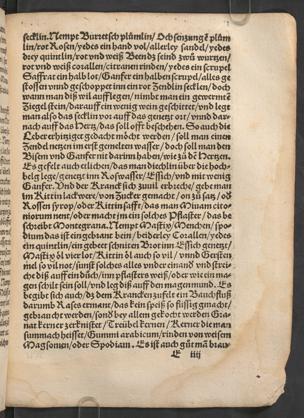 secklin. Nempt Burretsch plümlin/ Ochsenzungē plüm
lin/ rot Rosen/ yedes ein hand vol/ allerley sandel/ yedes
drey quintlin/ rot vnd weiß Beendz seind zwü wurtzen/
rot vnd weiß corallen/ citranen rinden/ yedes ein scrupel
Saffrat ein halb lot/ Ganfer ein halben scrupel/ alles ge
stossen vnnd geschoppet inn ein rot Zendlin secklen/ doch
wann man diß wil aufflegen/ nimbt man ein gewermtē
Ziegel stein/ darauff ein wenig wein geschittet/ vnd legt
man also das secklin vor auff das genetzt ort/ vnnd dar-
nach auff das Hertz/ das soll offt beschehen. So auch die
Leber erhitziger gedacht möcht werden/ soll man einen
Zendel netzen im erst gemelten wasser/ doch soll man den
Bisem vnd Ganfer nit darinn haben/ wie zů dē Hertzen.
Es gefelt auch etlichen/ das man die thüchlin über die hoch-
belg lege/ genetzt inn Roswasser/ Essich/ vnd mit wenig
Ganfer. Vnd der Kranck sich zuuil erbreche/ gebe man
im Kittin lackwere/ von Zucker gemacht/ on zů satz/ oder
Rosen syrop/ oder Kittinsafft/ das man Minam cito-
niorum nent/ oder macht jm ein solches Pflaster/ das be
schreibt Montegrana. Nempt Mastix/ Menchen/ spo-
dium das ist eingebant bein/ beiderley Corallen/ yedes
ein quintlin/ ein gebeet schniten Brot inn Essich genetzt/
Mastix öl vier lot/ Kittin öl auch so vil/ vnnd Gersten
mel so vil not/ sunst solches alles vnder einand vnd streich
che diß auff ein düch/ inn pflasters weiß/ oder wie ein ma-
gen schilt sein soll/ vnd leg diß auff den magenmund. Es
begibt sich auch/ dz dem Krancken zufelt ein Bauchfluß
darumb Rates ernant/ das kein speiß so flüssig gemacht/
gebraucht werden/ sond bey allem gekocht werden Gra-
nat kerner zerknistet/ Treübel kernen/ Kerner die man
summach heisset/ Gummi arabicum/ rinden von weissem
Magsomen/ oder Spodium. Es ist auch gůt mā brau
E iiij